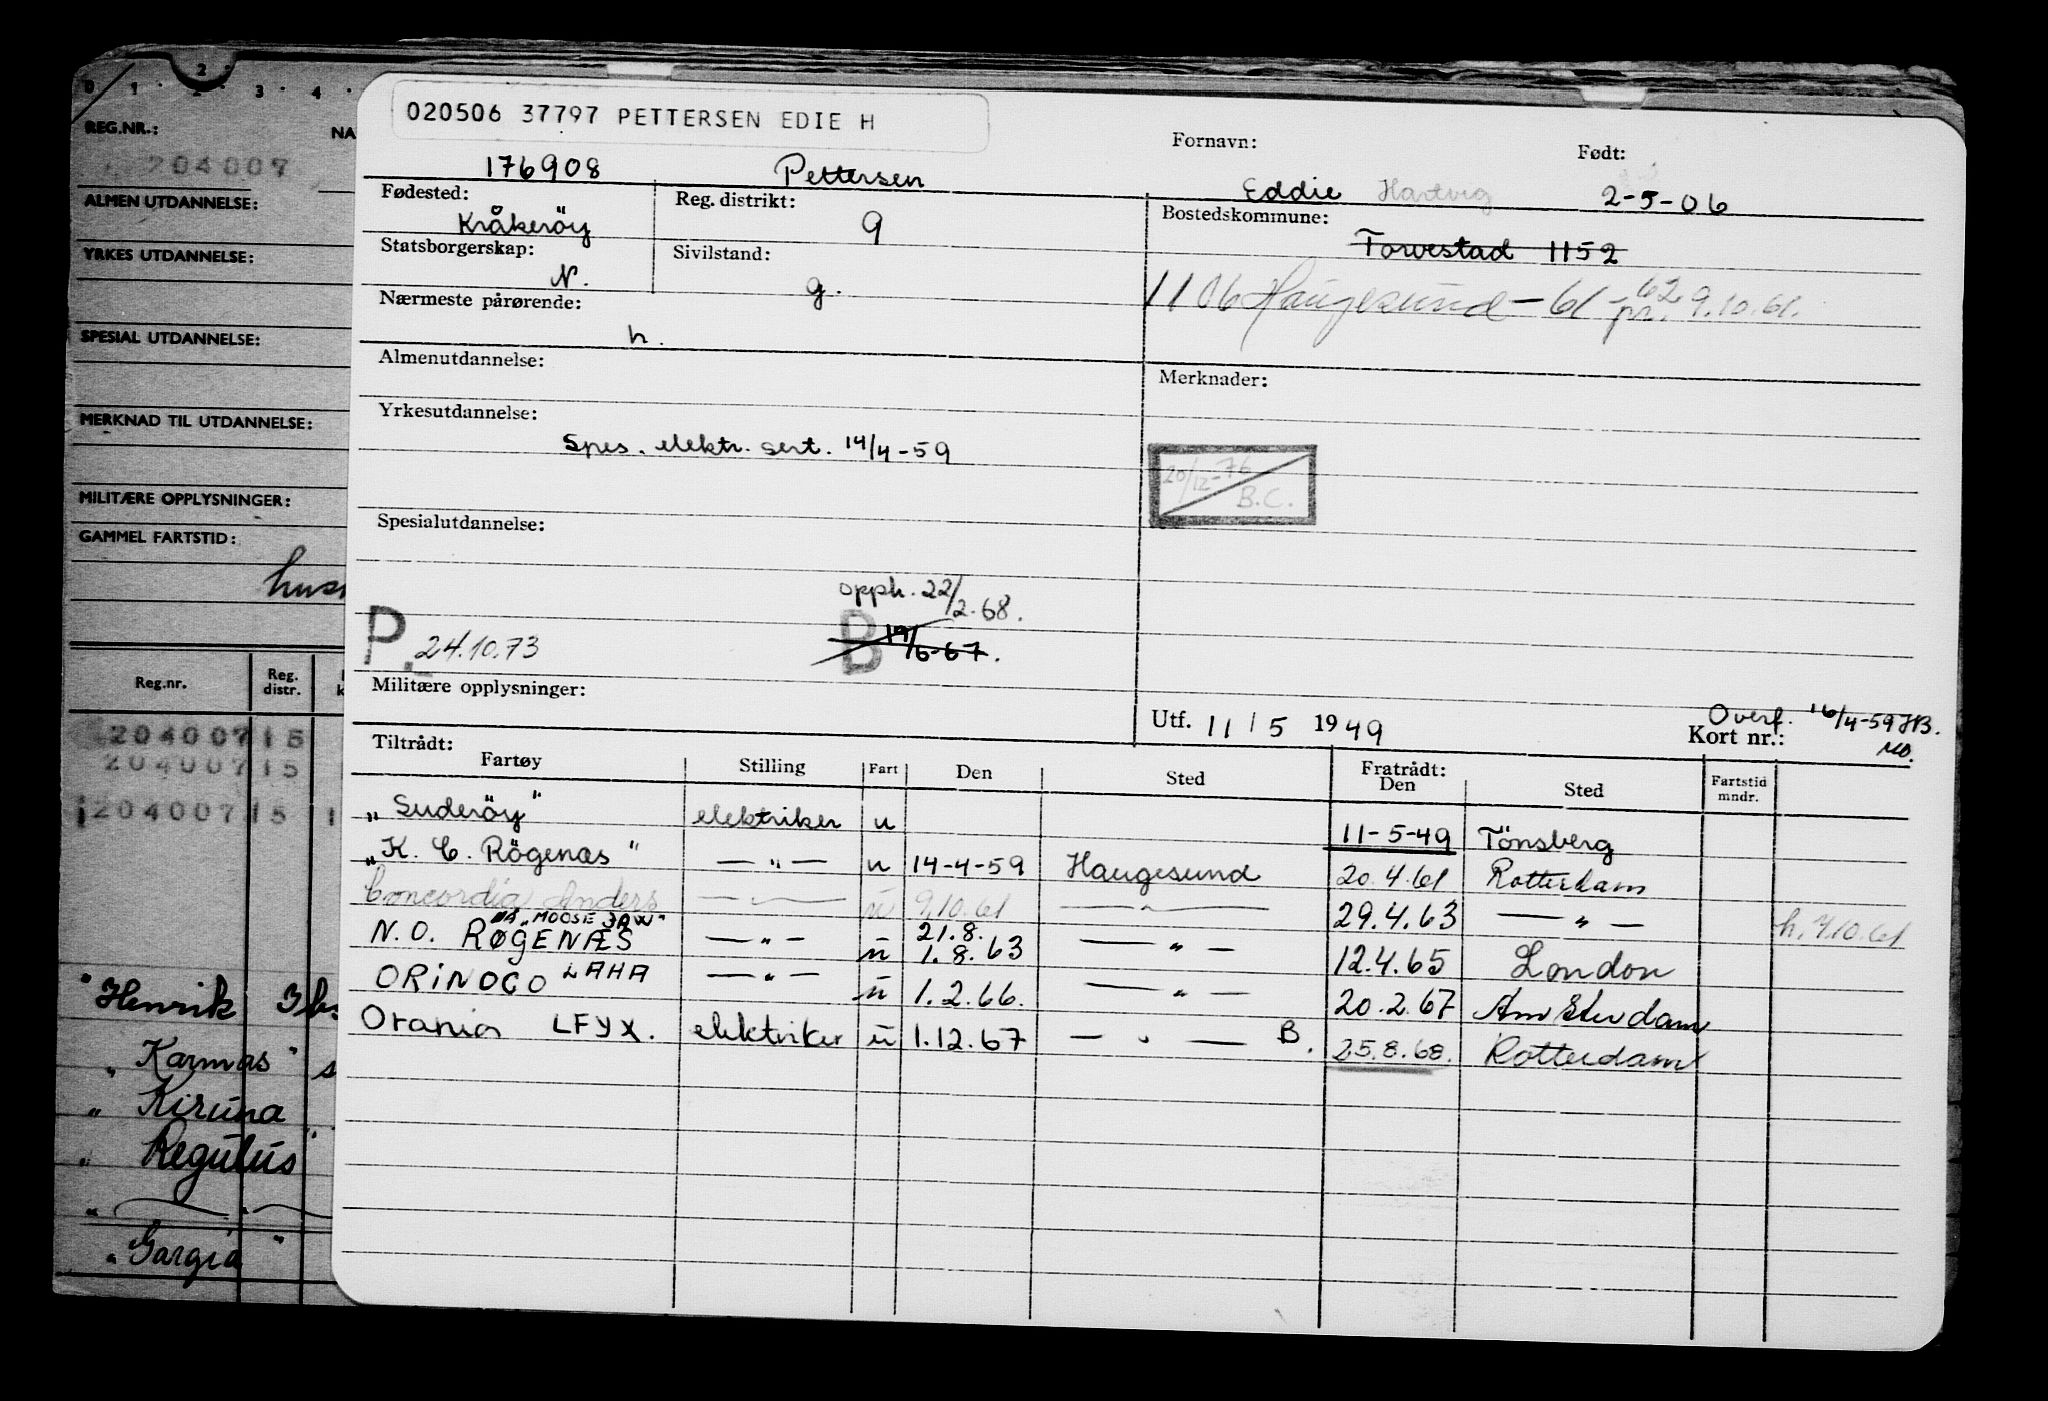 020506 37797 PETTERSEN EDIE H
Fornavn: Født:
176908 Pettersen Eddie Hartvig 2-5-06
Fødested: Kråkeröy
Reg. distrikt: 9
Bostedskommune: Torvestad 1152
Statsborgerskap: N.
Sivilstand: g.
1106 Haugesund - 61 - 62 pr. 9.10.61.
Nærmeste pårørende: h.
Almenutdannelse:
Merknader:
Yrkesutdannelse:
Spes. elektr. sert. 14/4-59
20/12-76 B.C.
Spesialutdannelse:
opph. 22/2.68.
P. 24.10.73
B 19/6-67.
Militære opplysninger:
Utf. 11/5 1949
Overf. 16/4-59 HB.
Kort nr.:
Tiltrådt: Fartøy Stilling Fart Den Sted Fratrådt: Den Sted Fartstid mndr.
"Suderöy" elektriker u 11-5-49 Tönsberg
"K. C. Rögenæs" — " — u 14-4-59 Haugesund 20.4.61 Rotterdam
Concordia Anders — — u 9.10.61 — " — 29.4.63 — " — h. 7.10.61
"MOOSE JAW"
N.O. RØGENÆS — " — u 21.8. 1.8.63 — " — 12.4.65 London
ORINOCO LAHA — " — u 1.2.66. — " — 20.2.67 Amsterdam
Orania LFYX. elektriker u 1.12.67 — " — B. 25.8.68. Rotterdam
0 1 2 3 4
2
REG.NR.: NA
204007
ALMEN UTDANNELSE:
YRKES UTDANNELSE:
SPESIAL UTDANNELSE:
MERKNAD TIL UTDANNELSE:
MILITÆRE OPPLYSNINGER:
GAMMEL FARTSTID:
Reg.nr. Reg. distr.
204007 15
204007 15
204007 15
"Henrik Ibs
"Karmøs" s
"Kiruna
"Regulus"
" — " —
"Gargia"